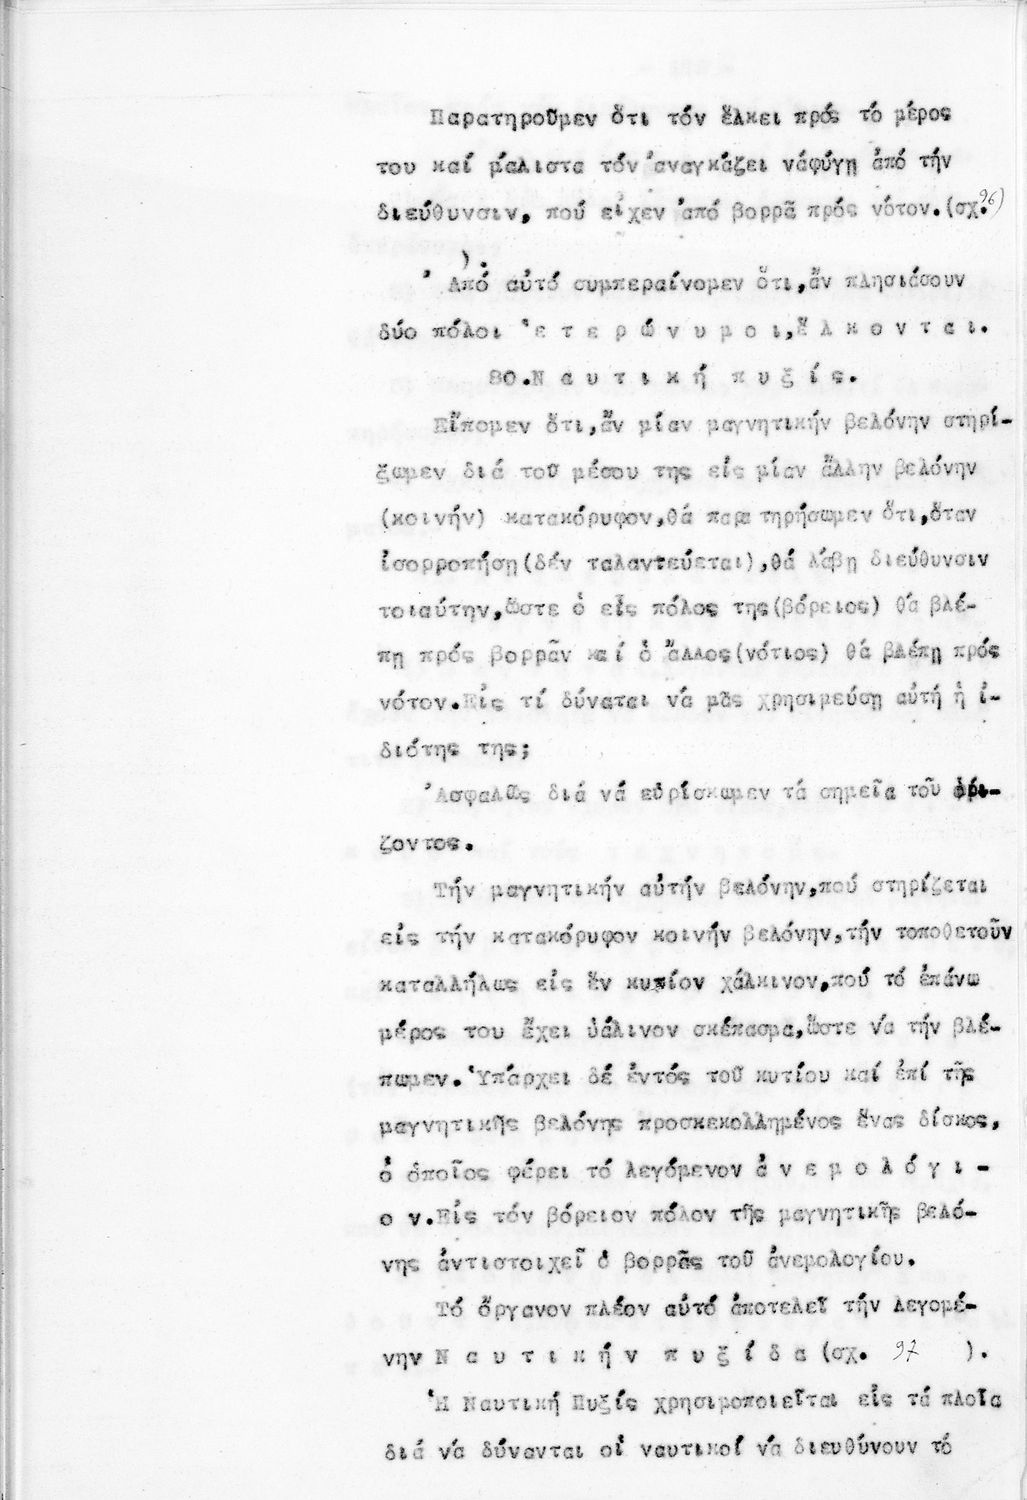 Παρατηροῦμεν ὅτι τόν ἕλκει πρός τό μέρος
του καί μάλιστα τόν ἀναγκάζει νάφύγῃ ἀπό τήν
διεύθυνσιν, πού εἶχεν ἀπό βορρᾶ πρός νότον.(σχ.96)
).
Ἀπό αὐτό συμπεραίνομεν ὅτι,ἄν πλησιάσουν
δύο πόλοι ἑ τ ε ρ ώ ν υ μ ο ι,ἕ λ κ ο ν τ α ι.
80.Ν α υ τ ι κ ή π υ ξ ί ς.
Εἴπομεν ὅτι,ἄν μίαν μαγνητικήν βελόνην στηρί-
ξωμεν διά τοῦ μέσου της εἰς μίαν ἄλλην βελόνην
(κοινήν) κατακόρυφον,θά παρα τηρήσωμεν ὅτι,ὅταν
ἰσορροπήσῃ(δέν ταλαντεύεται),θά λάβῃ διεύθυνσιν
τοιαύτην,ὥστε ὁ εἷς πόλος της(βόρειος) θά βλέ-
πῃ πρός βορρᾶν καί ὁ ἄλλος(νότιος) θά βλέπῃ πρός
νότον.Εἰς τί δύναται νά μᾶς χρησιμεύσῃ αὐτή ἡ ἰ-
διότης της;
Ἀσφαλῶς διά νά εὑρίσκωμεν τά σημεῖα τοῦ ὁρί-
ζοντος.
Τήν μαγνητικήν αὐτήν βελόνην,πού στηρίζεται
εἰς τήν κατακόρυφον κοινήν βελόνην,τήν τοποθετοῦν
καταλλήλως εἰς ἕν κυτίον χάλκινον,πού τό ἐπάνω
μέρος του ἔχει ὑάλινον σκέπασμα,ὥστε νά τήν βλέ-
πωμεν.Ὑπάρχει δέ ἐντός τοῦ κυτίου καί ἐπί τῆς
μαγνητικῆς βελόνης προσκεκολλημένος ἕνας δίσκος,
ὁ ὁποῖος φέρει τό λεγόμενον ἀ ν ε μ ο λ ό γ ι -
ο ν.Εἰς τόν βόρειον πόλον τῆς μαγνητικῆς βελό-
νης ἀντιστοιχεῖ ὁ βορρᾶς τοῦ ἀνεμολογίου.
Τό ὄργανον πλέον αὐτό ἀποτελεῖ τήν λεγομέ-
νην Ν α υ τ ι κ ή ν π υ ξ ί δ α (σχ. 97 ).
Ἡ Ναυτική Πυξίς χρησιμοποιεῖται εἰς τά πλοῖα
διά νά δύνανται οἱ ναυτικοί νά διευθύνουν τό